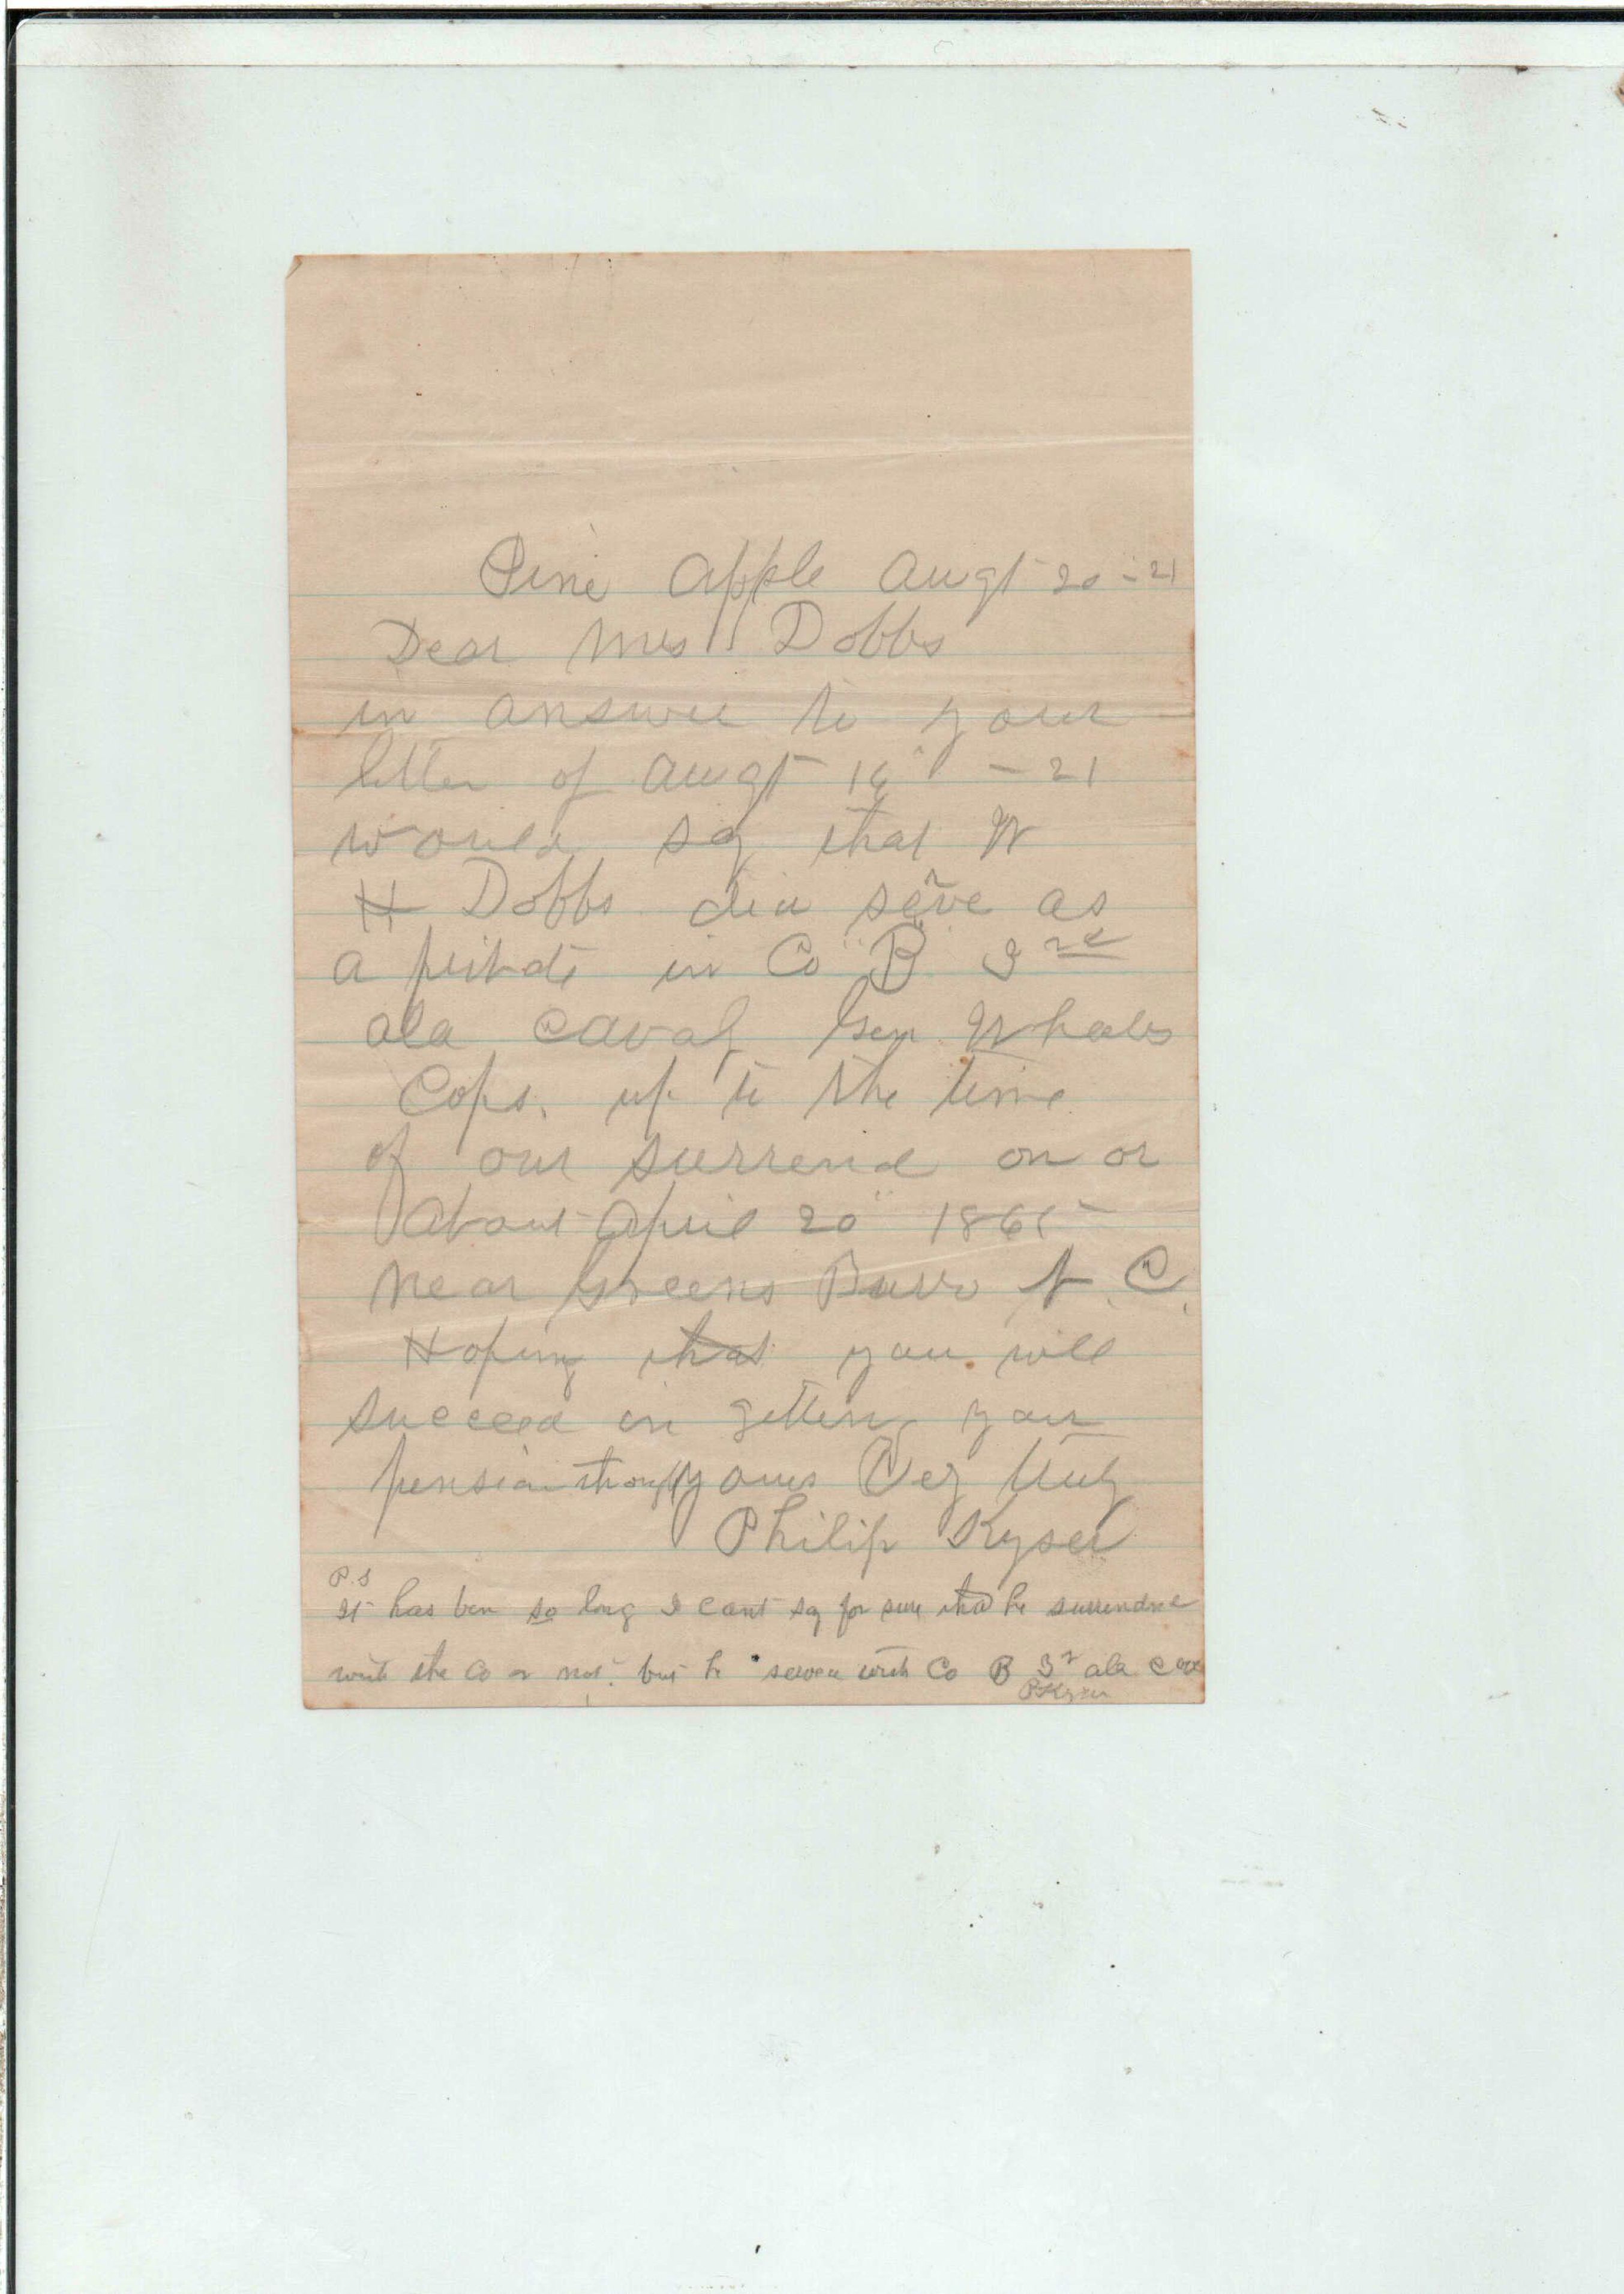 Pine Apple Augt 20 - 21
Dear Mrs Dobbs
in answer to your
letter of Augt 16" - 21
would say that W
H Dobbs did serve as
a private in Co "B" 3rd
Ala Cavaly Gen Wheelers
Cops. up to the time
of our surrend on or
about April 20" 1865
Near Greens Burro N. C.
Hoping that you will
succeed in getting your
pension through yours Very truly
Philip Kyser
P.S
It has ben so long I cant say for sure that he surrendred
with the Co or not. but he served with Co B 3r Ala Cav
P Kyser